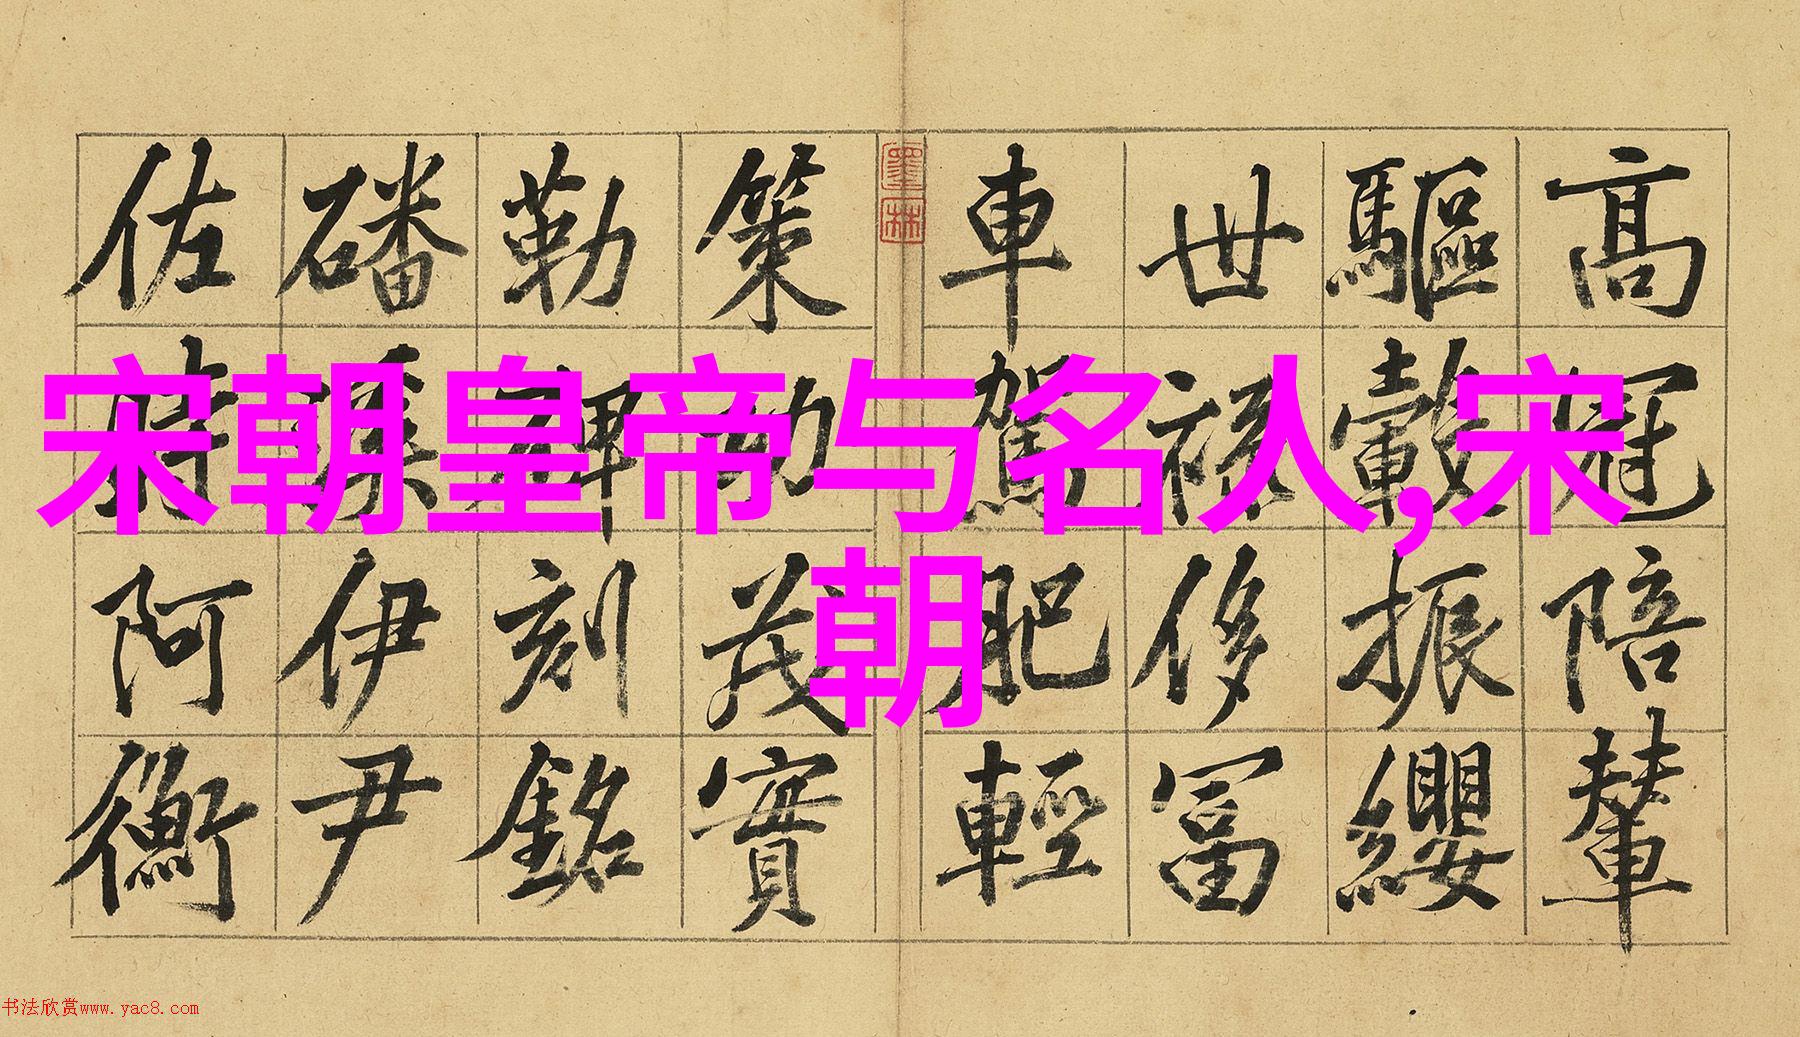 宋朝皇帝与名人,宋
朝
高冠陪輦
驅轂振纓
世禄侈冨
車駕肥輕
墨林
策功茂實
勒碑刻銘
磻溪伊尹
佐時阿衡
书法欣赏www.yac8.com